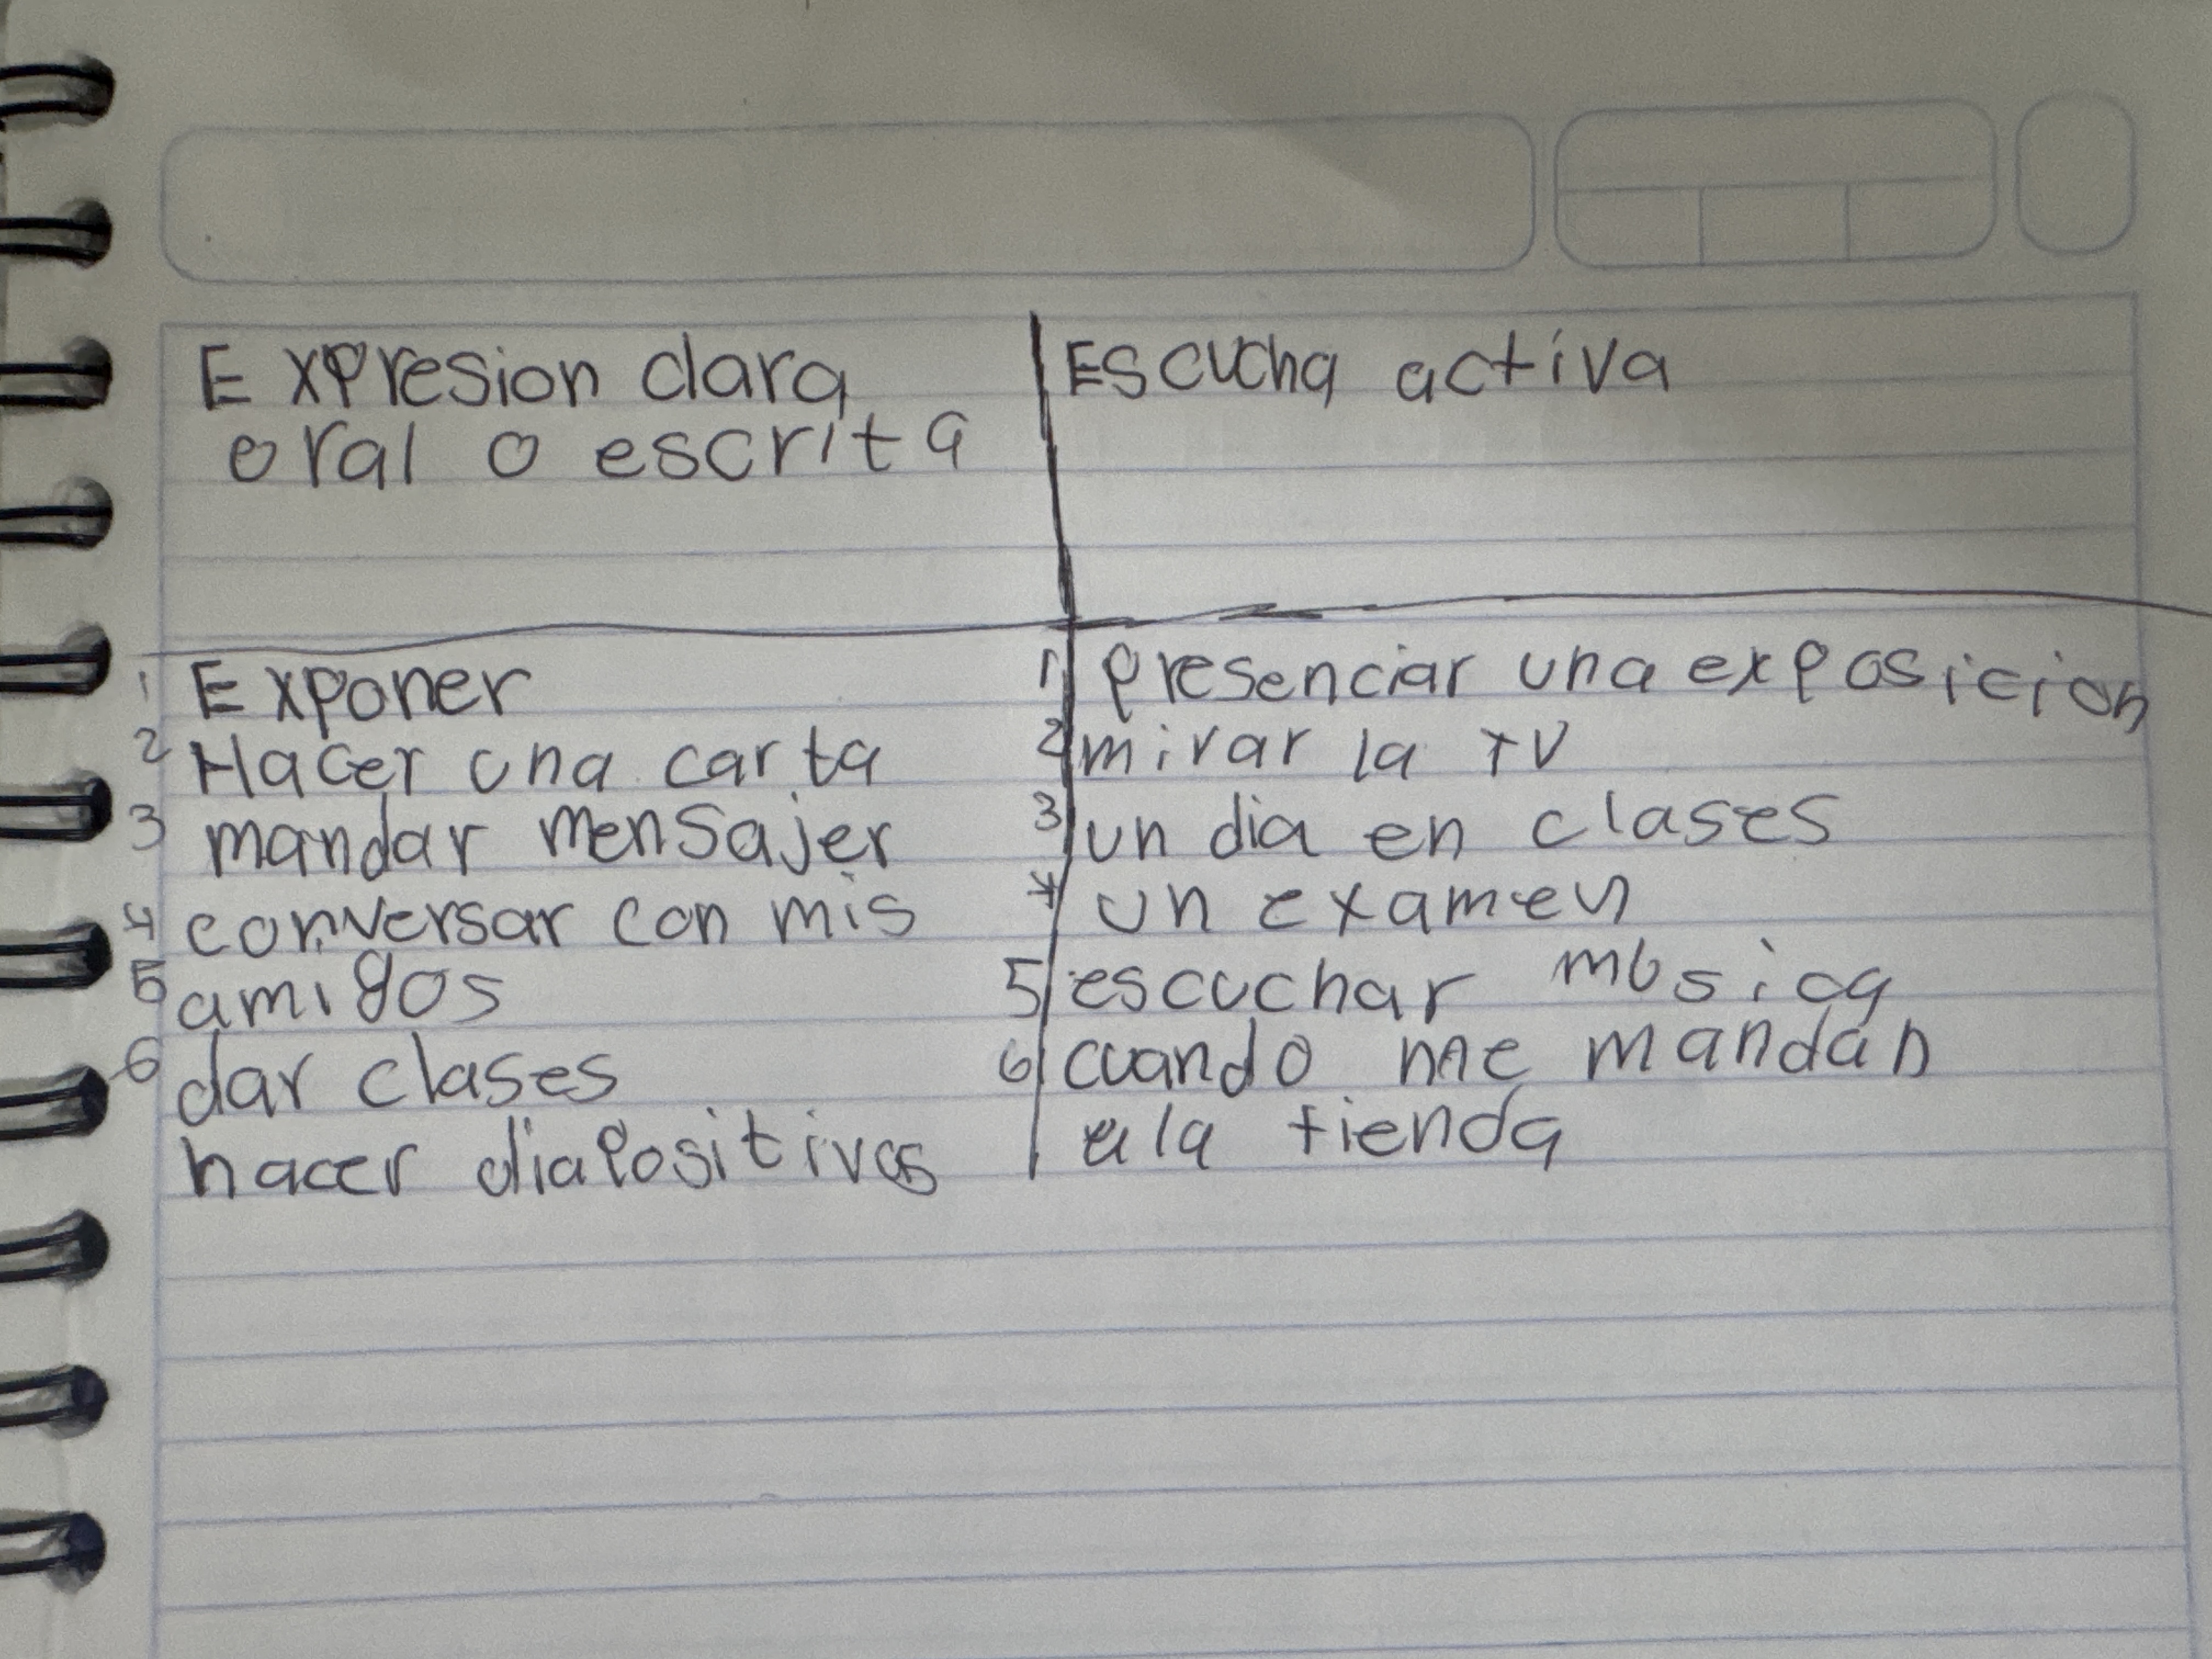 Expresion clara
oral o escrita
Escucha activa
1 Exponer
2 Hacer una carta
3 mandar mensajer
4 conversar con mis
5 amigos
6 dar clases
hacer diapositivas
1 presenciar una exposicion
2 mirar la TV
3 un dia en clases
4 un examen
5 escuchar musica
6 cuando me mandan
a la tienda